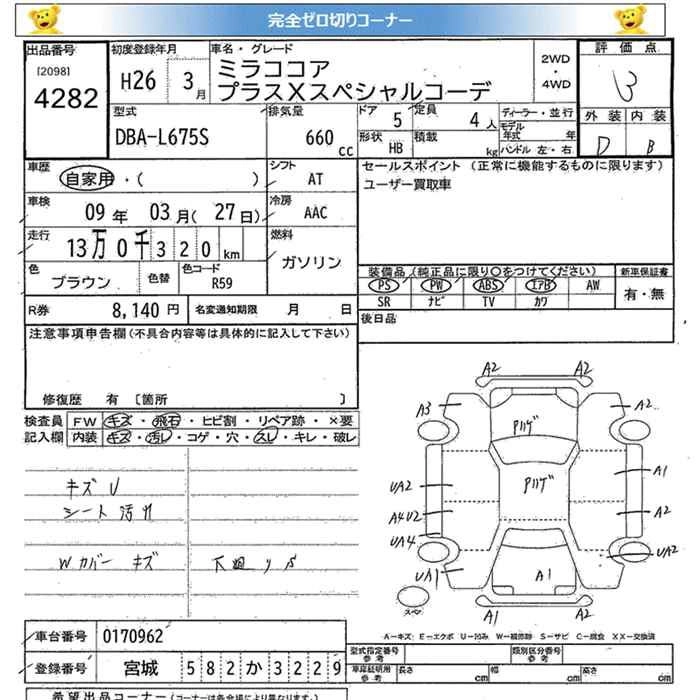 完全ゼロ切りコーナー
出品番号 初度登録年月 車名・グレード 2WD・4WD 評価点
[2098] 4282 H26 3月 ミラココア
プラスXスペシャルコーデ 3
外装 内装
D B
型式 排気量 ドア 5 定員 4人 ディーラー・並行
DBA-L675S 660cc 形状 HB 積載 kg モデル年式 年
ハンドル 左・右
車歴 自家用・( ) シフト AT セールスポイント (正常に機能するものに限ります)
ユーザー買取車
車検 09年 03月(27日) 冷房 AAC
走行 13万0千320km 燃料 ガソリン
色 ブラウン 色替 色コード R59
装備品(純正品に限り○をつけてください) 新車保証書
PS PW ABS エアB AW 有・無
SR ナビ TV カワ
R券 8,140円 名変通知期限 月 日
後日品
注意事項申告欄(不具合内容等は具体的に記入して下さい)
修復歴 有 [箇所 ]
検査員 FW キズ・飛石・ヒビ割・リペア跡・×要
記入欄 内装 キズ・汚レ・コゲ・穴・スレ・キレ・破レ
キズ U
シート 汚れ
Wカバー キズ 下廻りS
A2 A2
A3 A2
Pハゲ
Pハゲ A1
UA2
A4U2 A2
UA4 UA2
UA1 A1
スペア A1 A2
A-キズ E-エクボ U-凹み W-補修跡 S-サビ C-腐食 XX-交換済
車台番号 0170962
型式指定番号 参考 類別区分番号 参考
登録番号 宮城 582か3229
車庫証明用 参考 長さ cm 幅 cm 高さ cm
希望出品コーナー(コーナーは各会場により異なります)